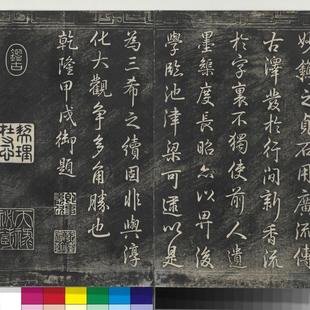 鐫之貞石用廣流傳
古澤發於行間新香流
於字裏不獨使前人遺
墨榘度長昭亦以畀後
學臨池津梁可迺以是
為三希之續固非與淳
化大觀爭多角勝也
乾隆甲戌御題
鑑古